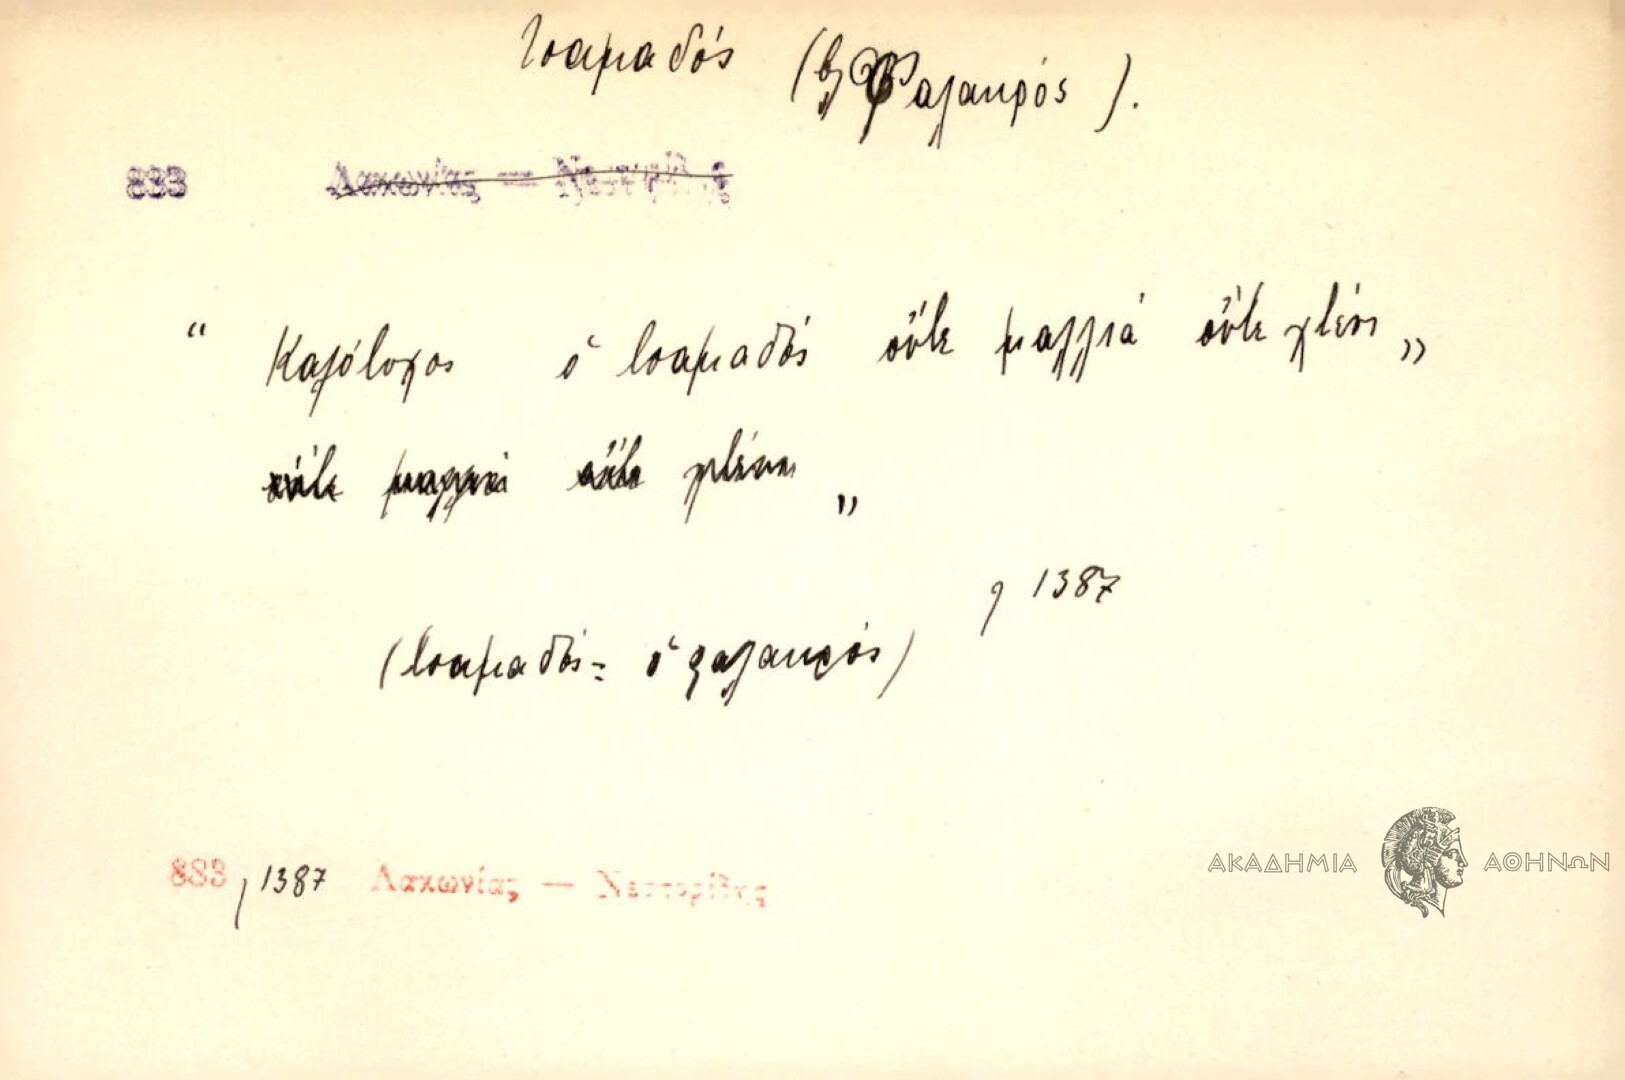 τσαμαδός (βλ Φαλακρός).
883 Λακωνίας — Νεστορίδης
“ Καλότυχος ὁ τσαμαδός οὔτε μαλλιά οὔτε χτένι „
οὔτε μαλλιά οὔτε χτένι „
, 1387
(τσαμαδός = ὁ φαλακρός)
883, 1387 Λακωνίας — Νεστορίδης
ΑΚΑΔΗΜΙΑ ΑΘΗΝΩΝ